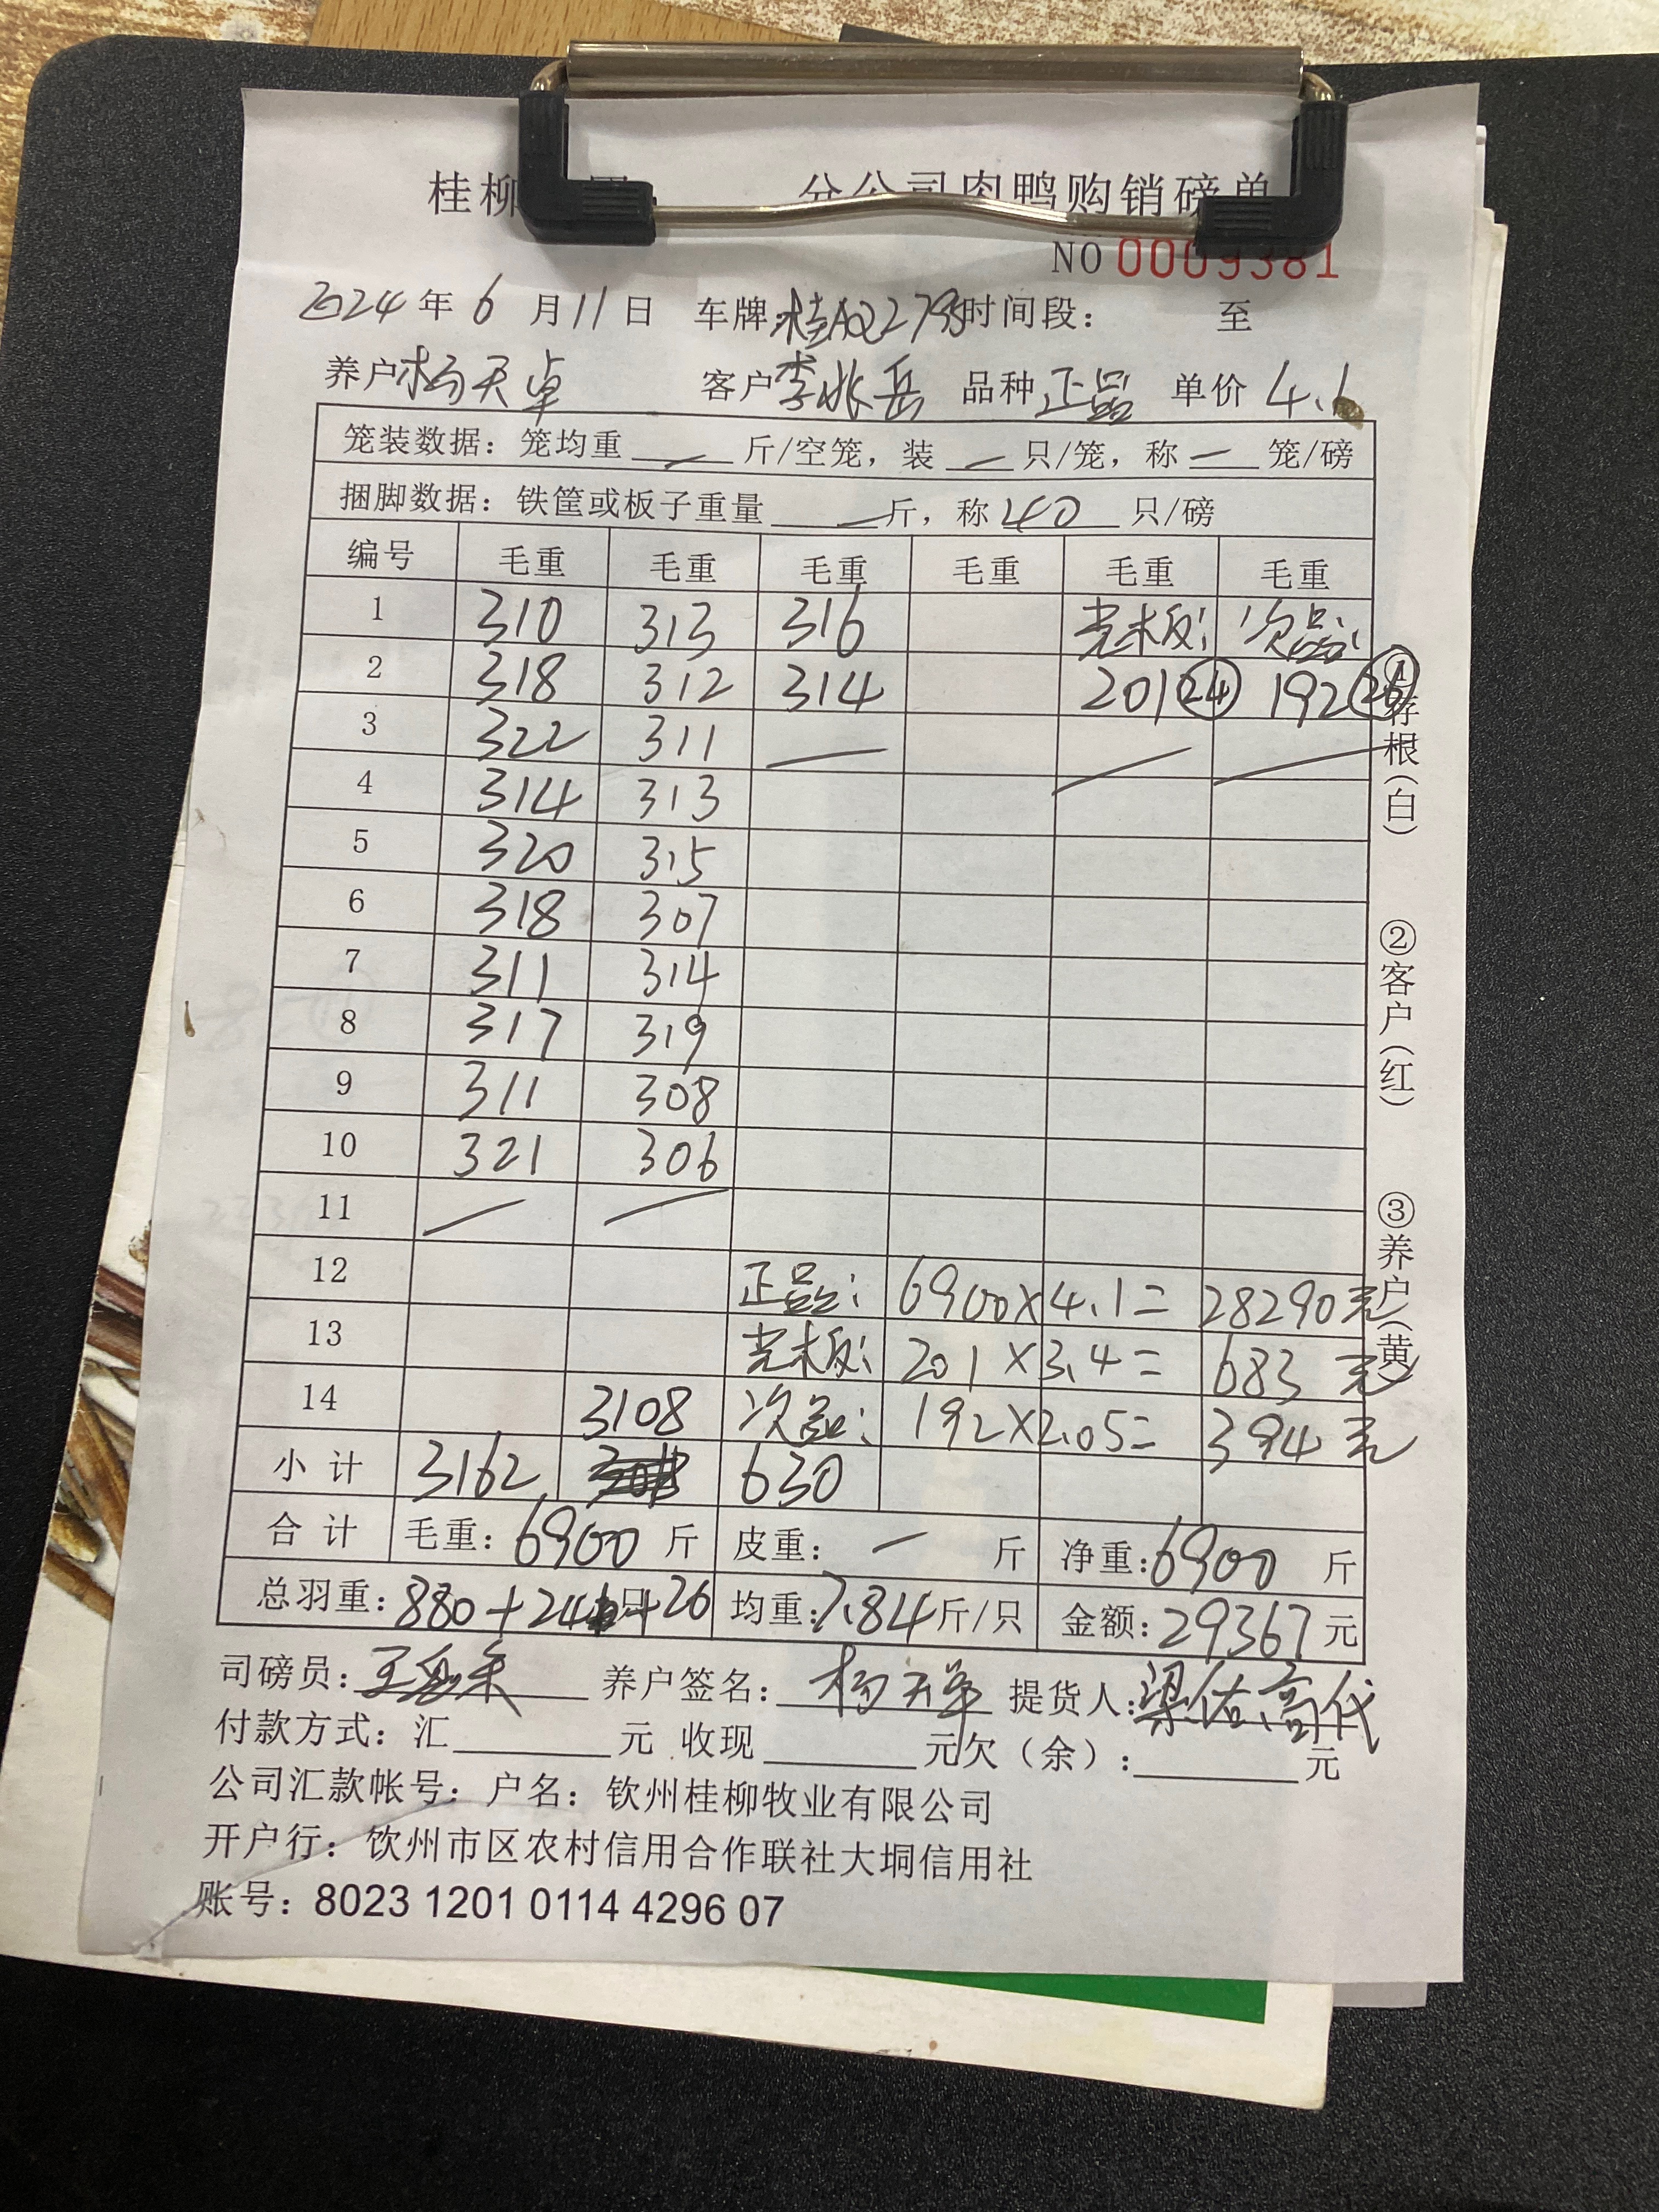 桂柳 分公司肉鸭购销磅单
NO 0009381
2024年6月11日 车牌:桂AQ2795 时间段: 至
养户 杨天卓 客户 李兆岳 品种 正品 单价 4.1
笼装数据:笼均重 — 斤/空笼,装 — 只/笼,称 — 笼/磅
捆脚数据:铁筐或板子重量 — 斤,称 40 只/磅
编号 毛重 毛重 毛重 毛重 毛重 毛重
1 310 313 316 光木板: 次品:
2 318 312 314 201 24 192 26
3 322 311 — — —
4 314 313
5 320 315
6 318 307
7 311 314
8 317 319
9 311 308
10 321 306
11 — —
12 正品: 6900×4.1= 28290元
13 光木板: 201×3.4= 683元
14 3108 次品: 192×2.05= 394元
小计 3162 630
合计 毛重:6900斤 皮重:—斤 净重:6900斤
总羽重:880+24只+26 均重:7.84斤/只 金额:29367元
司磅员: 养户签名:杨天卓 提货人:梁佑高代
付款方式:汇 元 收现 元欠(余): 元
公司汇款帐号:户名:钦州桂柳牧业有限公司
开户行:钦州市区农村信用合作联社大垌信用社
账号:8023 1201 0114 4296 07
①存根(白)
②客户(红)
③养户(黄)